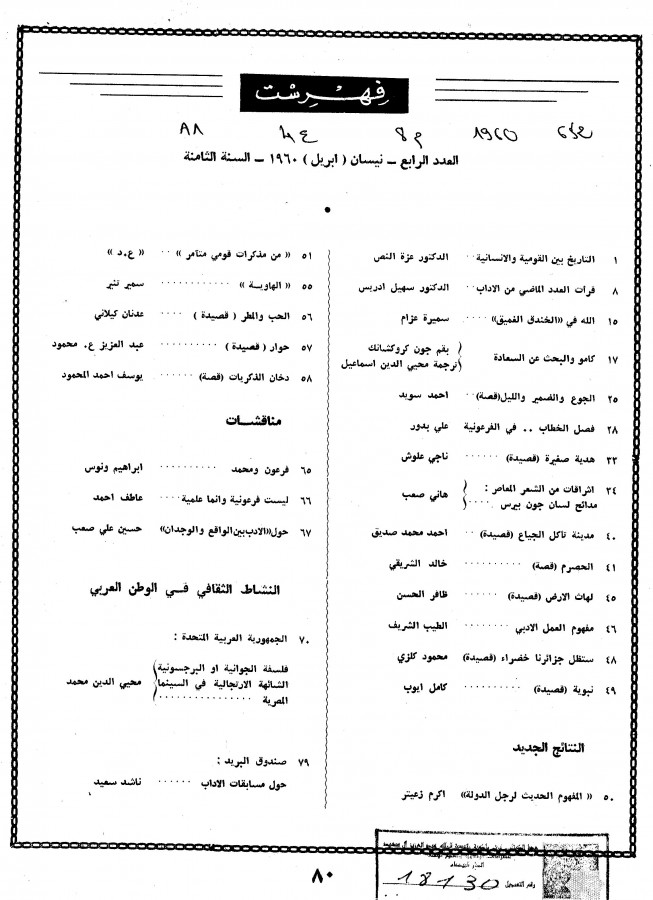 فهرست
٨٨ ع ٤ م 8 1960 642
العدد الرابع – نيسان ( ابريل ) ١٩٦٠ – السنة الثامنة
١ التاريخ بين القومية والانسانية ٠٠ الدكتور عزة النص
٨ قرأت العدد الماضي من الاداب ٠٠ الدكتور سهيل ادريس
١٥ الله في «الخندق الغميق» ٠٠٠٠ سميرة عزام
١٧ كامو والبحث عن السعادة { بقلم جون كروكشانك
ترجمة محيي الدين اسماعيل }
٢٥ الجوع والضمير والليل(قصة)٠٠ احمد سويد
٢٨ فصل الخطاب ٠٠ في الفرعونية علي بدور
٣٣ هدية صغيرة (قصيدة) ٠٠٠٠٠ ناجي علوش
٣٤ اشراقات من الشعر المعاصر :
مدائح لسان جون بيرس ٠٠٠٠٠ } هاني صعب
٤٠ مدينة تأكل الجياع (قصيدة) ٠٠ احمد محمد صديق
٤١ الحصرم (قصة) ٠٠٠٠٠٠٠٠٠ خالد الشريقي
٤٥ لهاث الارض (قصيدة) ٠٠٠٠٠٠ ظافر الحسن
٤٦ مفهوم العمل الادبي ٠٠٠٠٠٠٠ الطيب الشريف
٤٨ ستظل جزائرنا خضراء (قصيدة) محمود كلزي
٤٩ نبوية (قصيدة) ٠٠٠٠٠٠٠٠٠ كامل ايوب
النتائج الجديد
٥٠ « المفهوم الحديث لرجل الدولة» اكرم زعيتر
٥١ « من مذكرات قومي متآمر » ٠٠ « ع.د »
٥٥ « الهاوية » ٠٠٠٠٠٠٠٠٠٠٠٠ سمير تنير
٥٦ الحب والمطر ( قصيدة ) ٠٠٠٠ عدنان كيلاني
٥٧ حوار ( قصيدة ) ٠٠٠٠٠٠٠٠٠٠ عبد العزيز ع. محمود
٥٨ دخان الذكريات (قصة) ٠٠٠٠٠ يوسف احمد المحمود
مناقشات
٦٥ فرعون ومحمد ٠٠٠٠٠٠٠٠٠٠ ابراهيم ونوس
٦٦ ليست فرعونية وانما علمية ٠٠٠٠ عاطف احمد
٦٧ حول«الادب بين الواقع والوجدان» حسين علي صعب
النشاط الثقافي في الوطن العربي
٧٠ الجمهورية العربية المتحدة :
فلسفة الجوانية او البرجسونية
الشائهة الارتجالية في السينما } محيي الدين محمد
المصرية ٠٠٠٠٠٠٠٠٠٠٠٠٠٠٠٠
٧٩ صندوق البريد :
حول مسابقات الاداب ٠٠٠٠٠٠ ناشد سعيد
رقم التسجيل 18130
٨٠